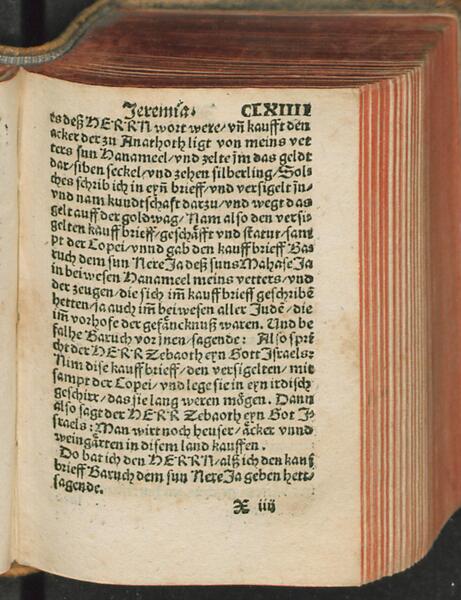 Jeremia. CLXIIII
es deß HERRN wort were/ vñ kaufft den
acker der zu Anathoth ligt von meins vet
ters sun Hanameel/ vnd zelte jm das geldt
dar/ siben seckel/ vnd zehen silberling/ Sol-
ches schrib ich in eyn brieff/ vnd versigelt jn/
vnd nam kundtschaft darzu/ vnd wegt das
gelt auff der goldwag/ Nam also den versi-
gelten kauff brieff/ geschäfft vnd statut/ sam
pt der Copei/ vnnd gab den kauff brieff Ba
ruch dem sun NereJa deß suns MahaseJa
in beiwesen Hanameel meins vetters/ vnd
der zeugen/ die sich im̃ kauff brieff geschribẽ
hetten/ ja auch im̃ beiwesen aller Judẽ/ die
im̃ vorhofe der gefäncknuß waren. Und be
falhe Baruch vor jnen/ sagende: Also spri
cht der HERR Zebaoth eyn Gott Israels:
Nim dise kauff brieff/ den versigelten/ mit
sampt der Copei/ vnd lege sie in eyn irdisch
geschirr/ das sie lang weren mögen. Dann
also sagt der HERR Zebaoth eyn Got J-
sraels: Man wirt noch heuser/ äcker vnnd
weingärten in disem land kauffen.
Do bat ich den HERRN/ alß ich den kauf
brieff Baruch dem sun NereJa geben hett/
sagende.
X iiij